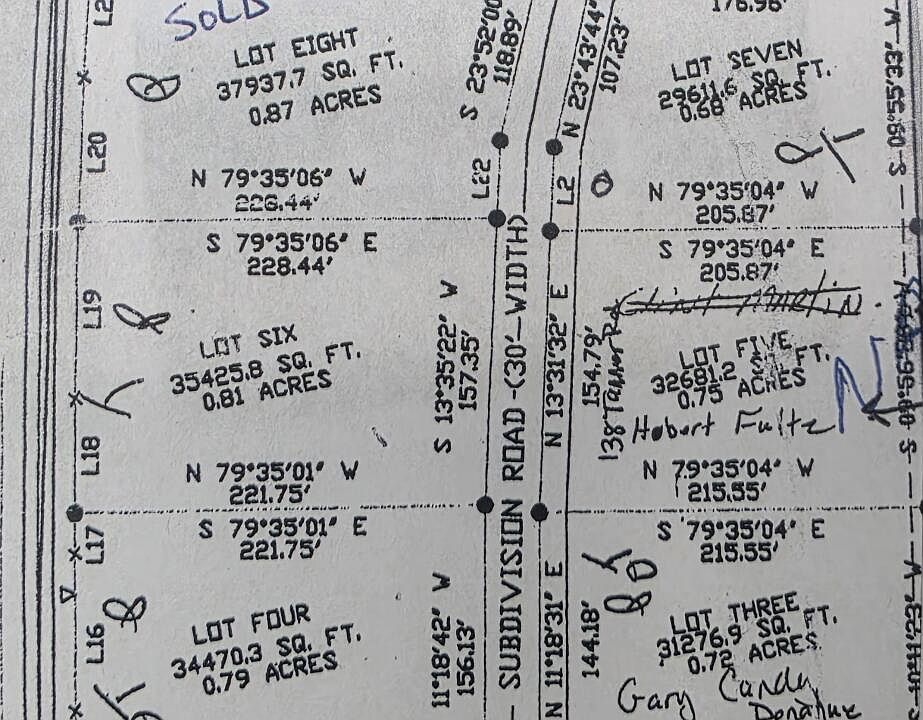 SOLD
LOT EIGHT
37937.7 SQ. FT.
0.87 ACRES
L20
N 79°35'06" W
226.44'
S 23°52'00
118.89'
L22
N 23°43'44"
107.23'
L2
176.96'
LOT SEVEN
29611.6 SQ. FT.
0.68 ACRES
N 79°35'04" W
205.87'
S 08°55'33" W
S 79°35'06" E
228.44'
L19
LOT SIX
35425.8 SQ. FT.
0.81 ACRES
L18
N 79°35'01" W
221.75'
S 13°35'22" W
157.35'
SUBDIVISION ROAD-(30'-WIDTH)
N 13°31'32" E
154.79'
138 Tanner Rd
S 79°35'04" E
205.87'
LOT FIVE
32681.2 SQ. FT.
0.75 ACRES
Hobert Fultz
N
N 79°35'04" W
215.55'
S 79°35'01" E
221.75'
L17
L16
LOT FOUR
34470.3 SQ. FT.
0.79 ACRES
11°18'42" W
156.13'
N 11°18'31" E
144.18'
S 79°35'04" E
215.55'
LOT THREE
31276.9 SQ. FT.
0.72 ACRES
Gary Candy